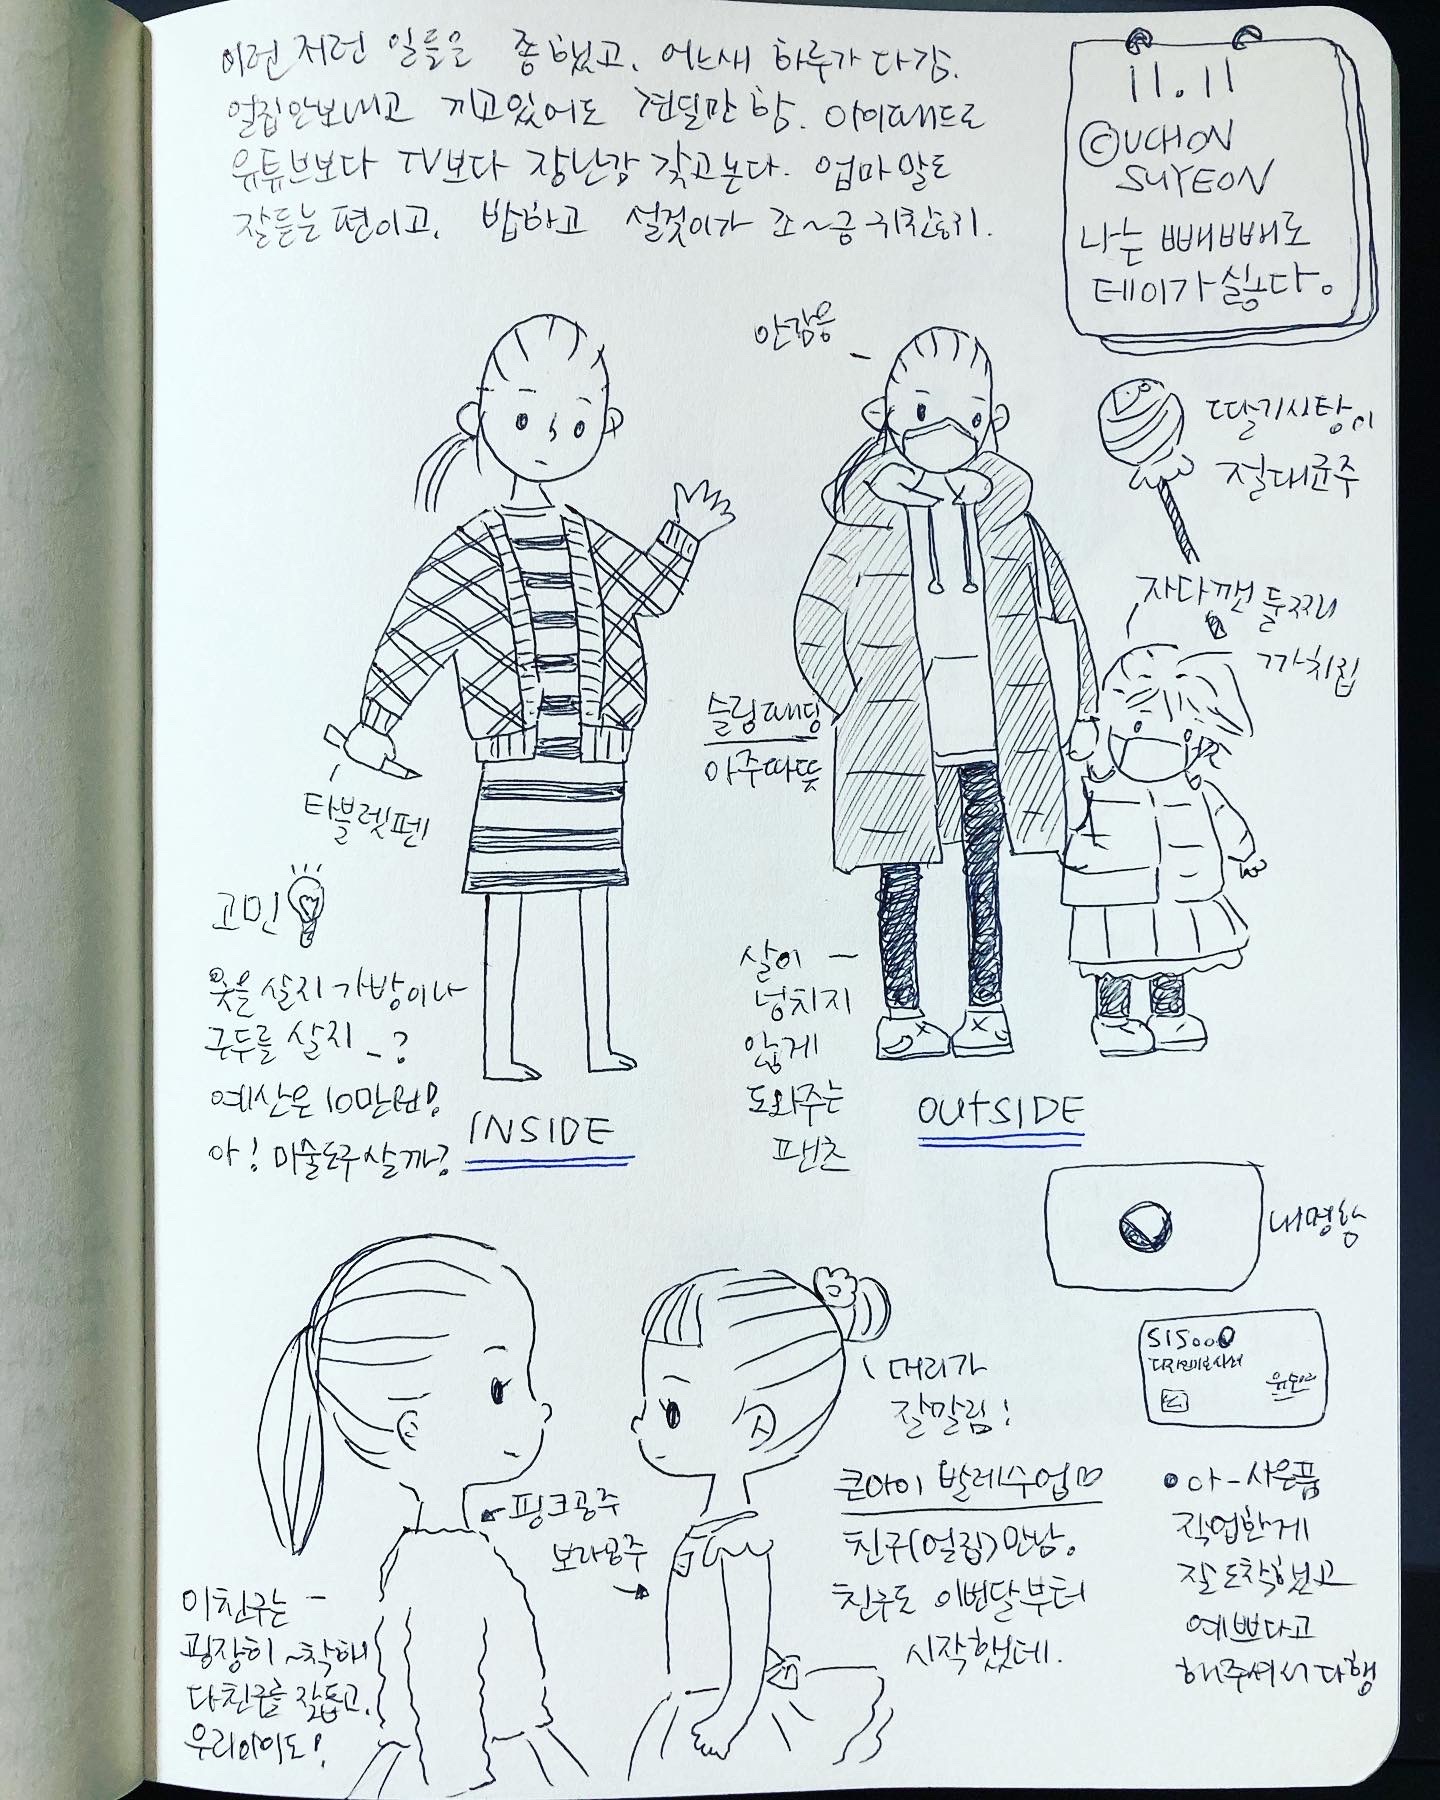 이런저런 일들을 좀 했고, 어느새 하루가 다감.
얼집안보내고 끼고있어도 견딜만 함. 아이패드로
유튜브보다 TV보다 장난감 갖고논다. 엄마말도
잘듣는 편이고, 밥하고 설겆이가 조~금 귀찮지.
11.11
©UCHON
SUYEON
나는 빼빼로
데이가 싫다.
안감음
딸기사탕이
절대균주
자다깬 둘째
까치집
슬림패딩
아주따뜻
타블렛펜
고민
옷을 살지 가방이나
구두를 살지 _?
예산은 10만원!
아! 미술도구살까?
INSIDE
살이
넘치지
않게
도와주는
팬츠
OUTSIDE
내명함
머리가
잘말림!
핑크공주
보라공주
큰아이 발레수업
친구(얼집)만남.
친구도 이번달부터
시작했데.
이친구는
굉장히~착해
다친구를 잘돕고,
우리아이도!
아-사은품
작업한게
잘도착했고
예쁘다고
해주셔서 다행